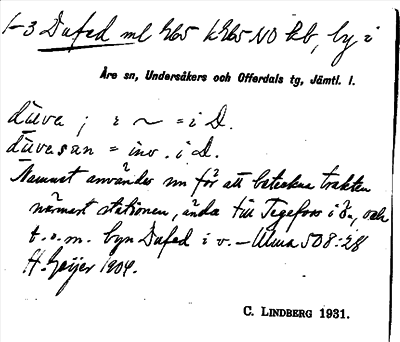 1-3 Dufed ml 965 k965 NO Kb, by i
Åre sn, Undersåkers och Offerdals tg, Jämtl. l.
dūva ; i ~ = i D.
dūvasan = inv. i D.
Namnet användes nu för att beteckna trakten
närmast stationen, ända till Tegefors i ö., och
t. o. m. byn Dufed i v. — Ulma 508:28
H. Geijer 1904.
C. LINDBERG 1931.